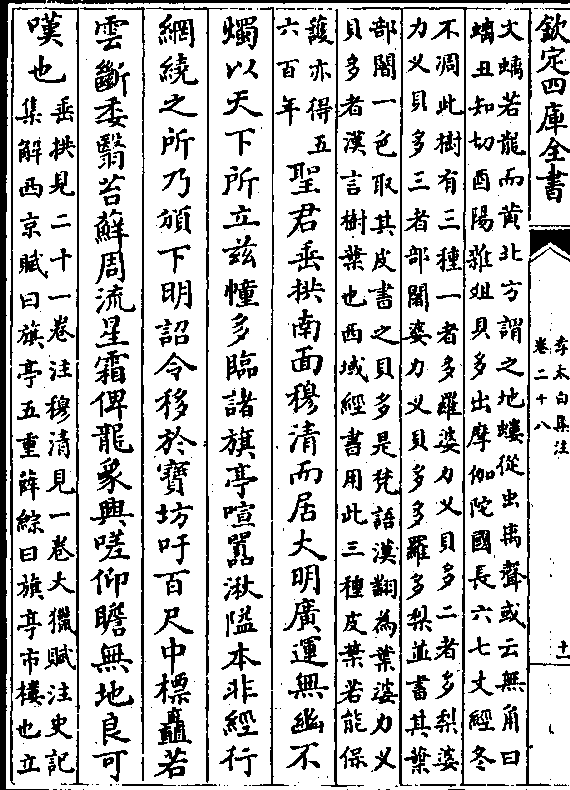 欽定四庫全書
李太白集注
卷二十八
十一
文螭若龍而黄北方謂之地螻從虫离聲或云無角曰
螭丑知切酉陽雜俎貝多出摩伽陀國長六七丈經冬
不凋此樹有三種一者多羅婆力乂貝多二者多梨婆
力乂貝多三者部闍婆力乂貝多多羅多梨並書其葉
部闍一色取其皮書之貝多是梵語漢翻為葉婆力乂
貝多者漢言樹葉也西域經書用此三種皮葉若能保
護亦得五
六百年
聖君垂拱南面穆清而居大明廣運無幽不
燭以天下所立兹幢多臨諸旗亭喧囂湫隘本非經行
網繞之所乃頒下明詔令移於寶坊吁百尺中標矗若
雲斷委翳苔蘚周流星霜俾龍象興嗟仰瞻無地良可
嘆也
垂拱見二十一卷注穆清見一卷大獵賦注史記
集解西京賦曰旗亭五重薛綜曰旗亭市樓也立